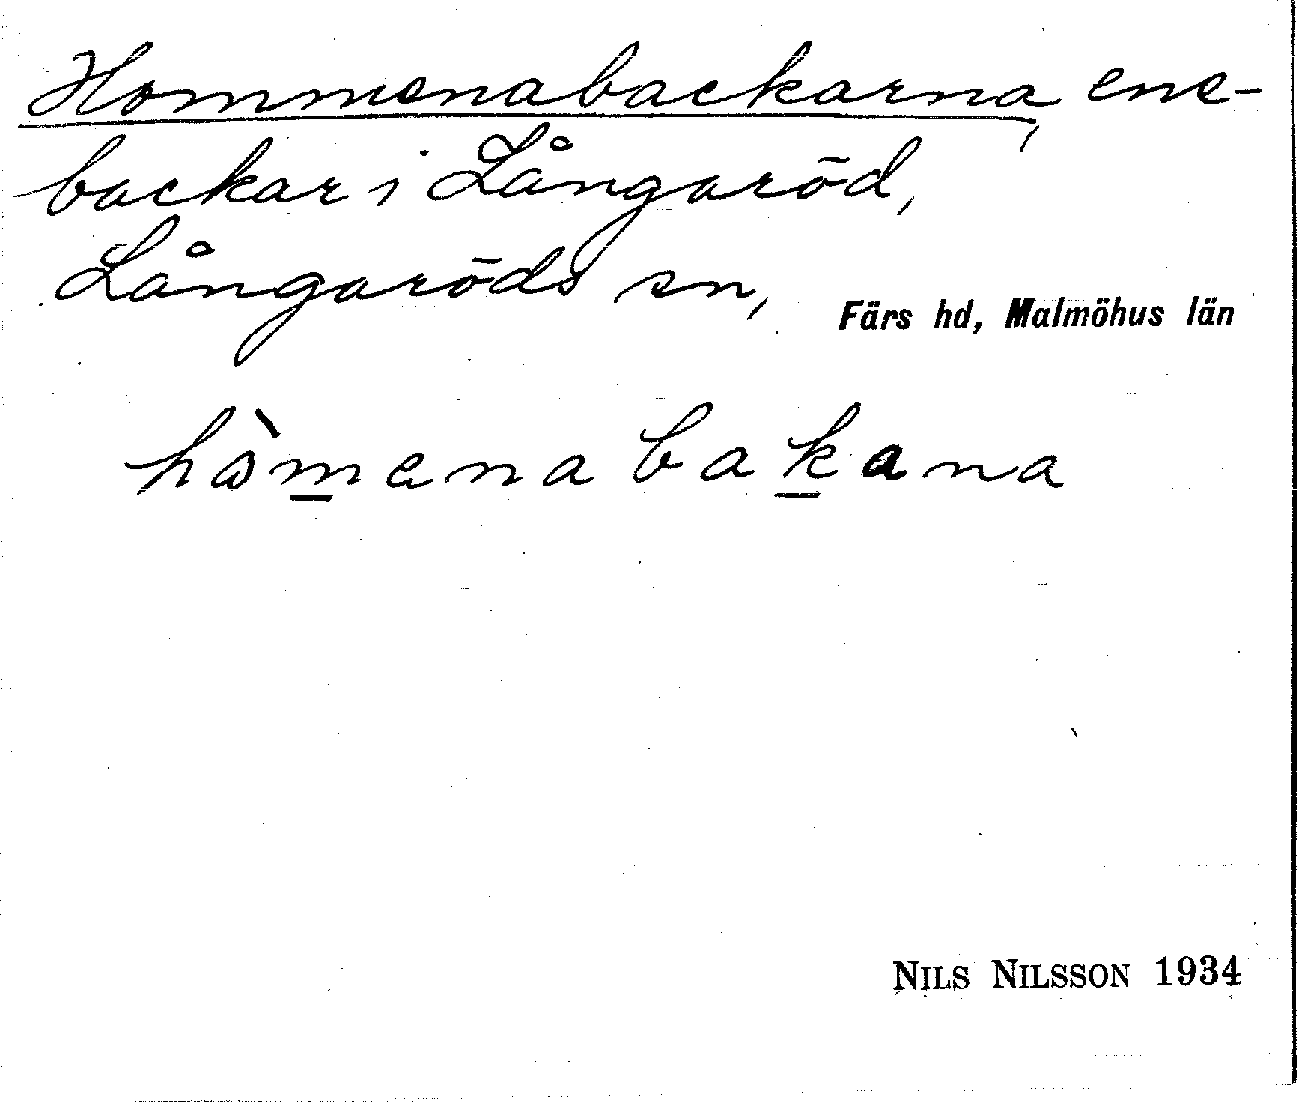 Hommenabackarna, ene-
backar i Långaröd,
Långaröds sn, Färs hd, Malmöhus län
hòmenabakana
NILS NILSSON 1934